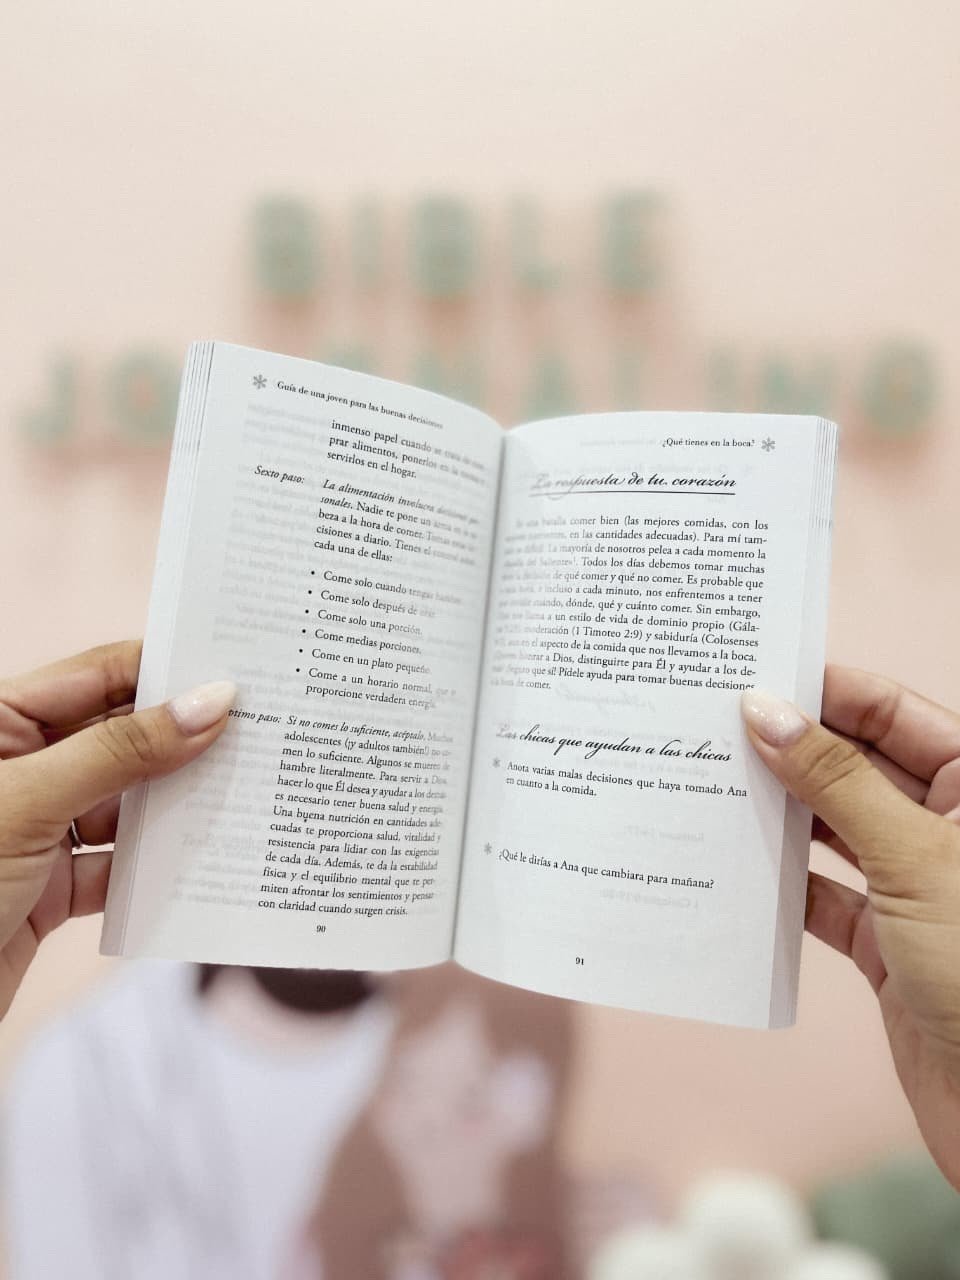 BIBLE
Guía de una joven para las buenas decisiones
inmenso papel cuando se trata de com-
prar alimentos, ponerlos en la
servirlos en el hogar.
Sexto paso: La alimentación involucra decisiones per-
sonales. Nadie te pone un arma en la ca-
beza a la hora de comer. Tomas
cisiones a diario. Tienes el control
cada una de ellas:
• Come solo cuando tengas hambre.
• Come solo después de orar.
• Come solo una porción.
• Come medias porciones.
• Come en un plato pequeño.
• Come a un horario normal, que te
proporcione verdadera energía.
ptimo paso: Si no comes lo suficiente, acéptalo. Muchos
adolescentes (¡y adultos también!) no co-
men lo suficiente. Algunos se mueren de
hambre literalmente. Para servir a Dios,
hacer lo que Él desea y ayudar a los demás
es necesario tener buena salud y energía.
Una buena nutrición en cantidades ade-
cuadas te proporciona salud, vitalidad y
resistencia para lidiar con las exigencias
de cada día. Además, te da la estabilidad
física y el equilibrio mental que te per-
miten afrontar los sentimientos y pensar
con claridad cuando surgen crisis.
90
¿Qué tienes en la boca?
La respuesta de tu corazón
Es una batalla comer bien (las mejores comidas, con los
en las cantidades adecuadas). Para mí tam-
La mayoría de nosotros pelea a cada momento la
Todos los días debemos tomar muchas
de qué comer y qué no comer. Es probable que
incluso a cada minuto, nos enfrentemos a tener
cuándo, dónde, qué y cuánto comer. Sin embargo,
a un estilo de vida de dominio propio (Gála-
moderación (1 Timoteo 2:9) y sabiduría (Colosenses
en el aspecto de la comida que nos llevamos a la boca.
honrar a Dios, distinguirte para Él y ayudar a los de-
¡Seguro que sí! Pídele ayuda para tomar buenas decisiones
de comer.
Las chicas que ayudan a las chicas
Anota varias malas decisiones que haya tomado Ana
en cuanto a la comida.
¿Qué le dirías a Ana que cambiara para mañana?
91